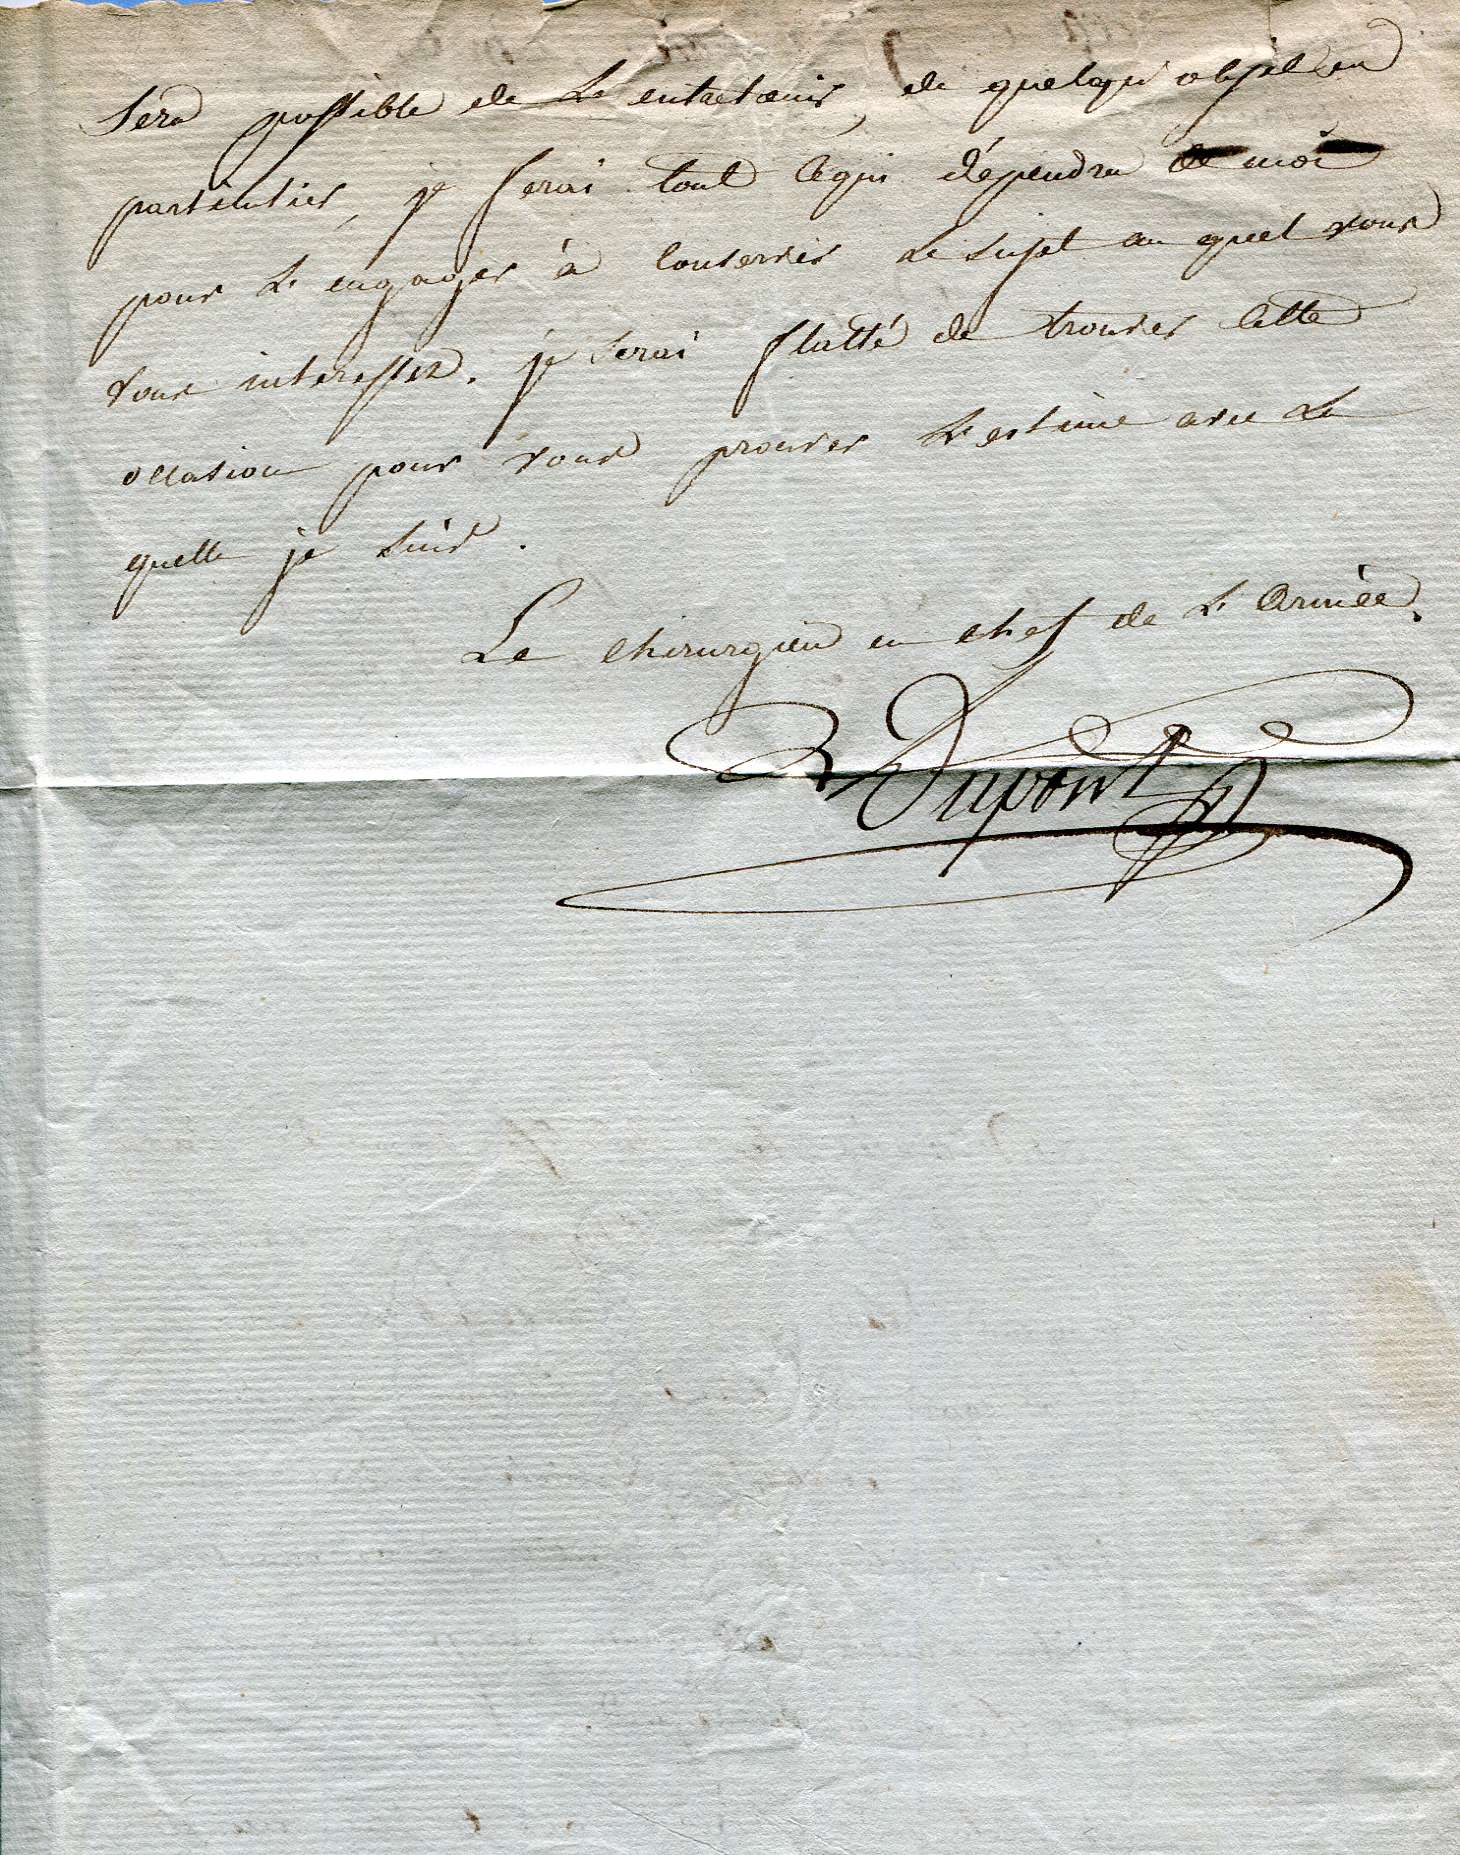 Sera possible de L'entretenir, de quelque objet en
particulier, je ferai tout cequi dépendra de moi
pour L'engager à conserver Le sujet au quel vous
vous interessez. je serai flatté de trouver cette
occasion pour vous prouver L'estime avec La
quelle je suis.
Le chirurgien en chef de L'Armée.
Dupont